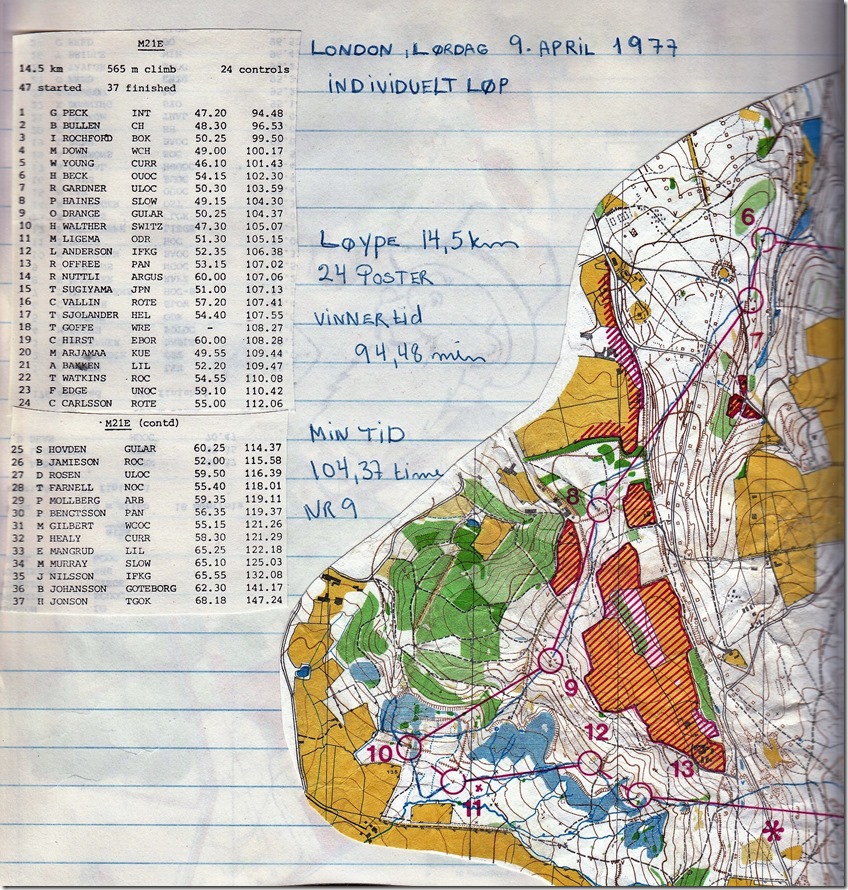 M21E
14.5 km 565 m climb 24 controls
47 started 37 finished
1 G PECK INT 47.20 94.48
2 B BULLEN CH 48.30 96.53
3 I ROCHFORD BOK 50.25 99.50
4 M DOWN WCH 49.00 100.17
5 W YOUNG CURR 46.10 101.43
6 H BECK OUOC 54.15 102.30
7 R GARDNER ULOC 50.30 103.59
8 P HAINES SLOW 49.15 104.30
9 O DRANGE GULAR 50.25 104.37
10 H WALTHER SWITZ 47.30 105.07
11 M LIGEMA ODR 51.30 105.15
12 L ANDERSON IFKG 52.35 106.38
13 R OFFREE PAN 53.15 107.02
14 R NUTTLI ARGUS 60.00 107.06
15 T SUGIYAMA JPN 51.00 107.13
16 C VALLIN ROTE 57.20 107.41
17 T SJOLANDER HEL 54.40 107.55
18 T GOFFE WRE - 108.27
19 C HIRST EBOR 60.00 108.28
20 M ARJAMAA KUE 49.55 109.44
21 A BAKKEN LIL 52.20 109.47
22 T WATKINS ROC 54.55 110.08
23 F EDGE UNOC 59.10 110.42
24 C CARLSSON ROTE 55.00 112.06
M21E (contd)
25 S HOVDEN GULAR 60.25 114.37
26 B JAMIESON ROC 52.00 115.58
27 D ROSEN ULOC 59.50 116.39
28 T FARNELL NOC 55.40 118.01
29 P MOLLBERG ARB 59.35 119.11
30 P BENGTSSON PAN 56.35 119.37
31 M GILBERT WCOC 55.15 121.26
32 P HEALY CURR 58.30 121.29
33 E MANGRUD LIL 65.25 122.18
34 M MURRAY SLOW 65.10 125.03
35 J NILSSON IFKG 65.55 132.08
36 B JOHANSSON GOTEBORG 62.30 141.17
37 H JONSON TGOK 68.18 147.24
LONDON, LØRDAG 9. APRIL 1977
INDIVIDUELT LØP
LØYPE 14,5 km
24 POSTER
VINNERtid
94,48 min
MIN TID
104,37 time
NR 9
6
7
8
9
10
11
12
13